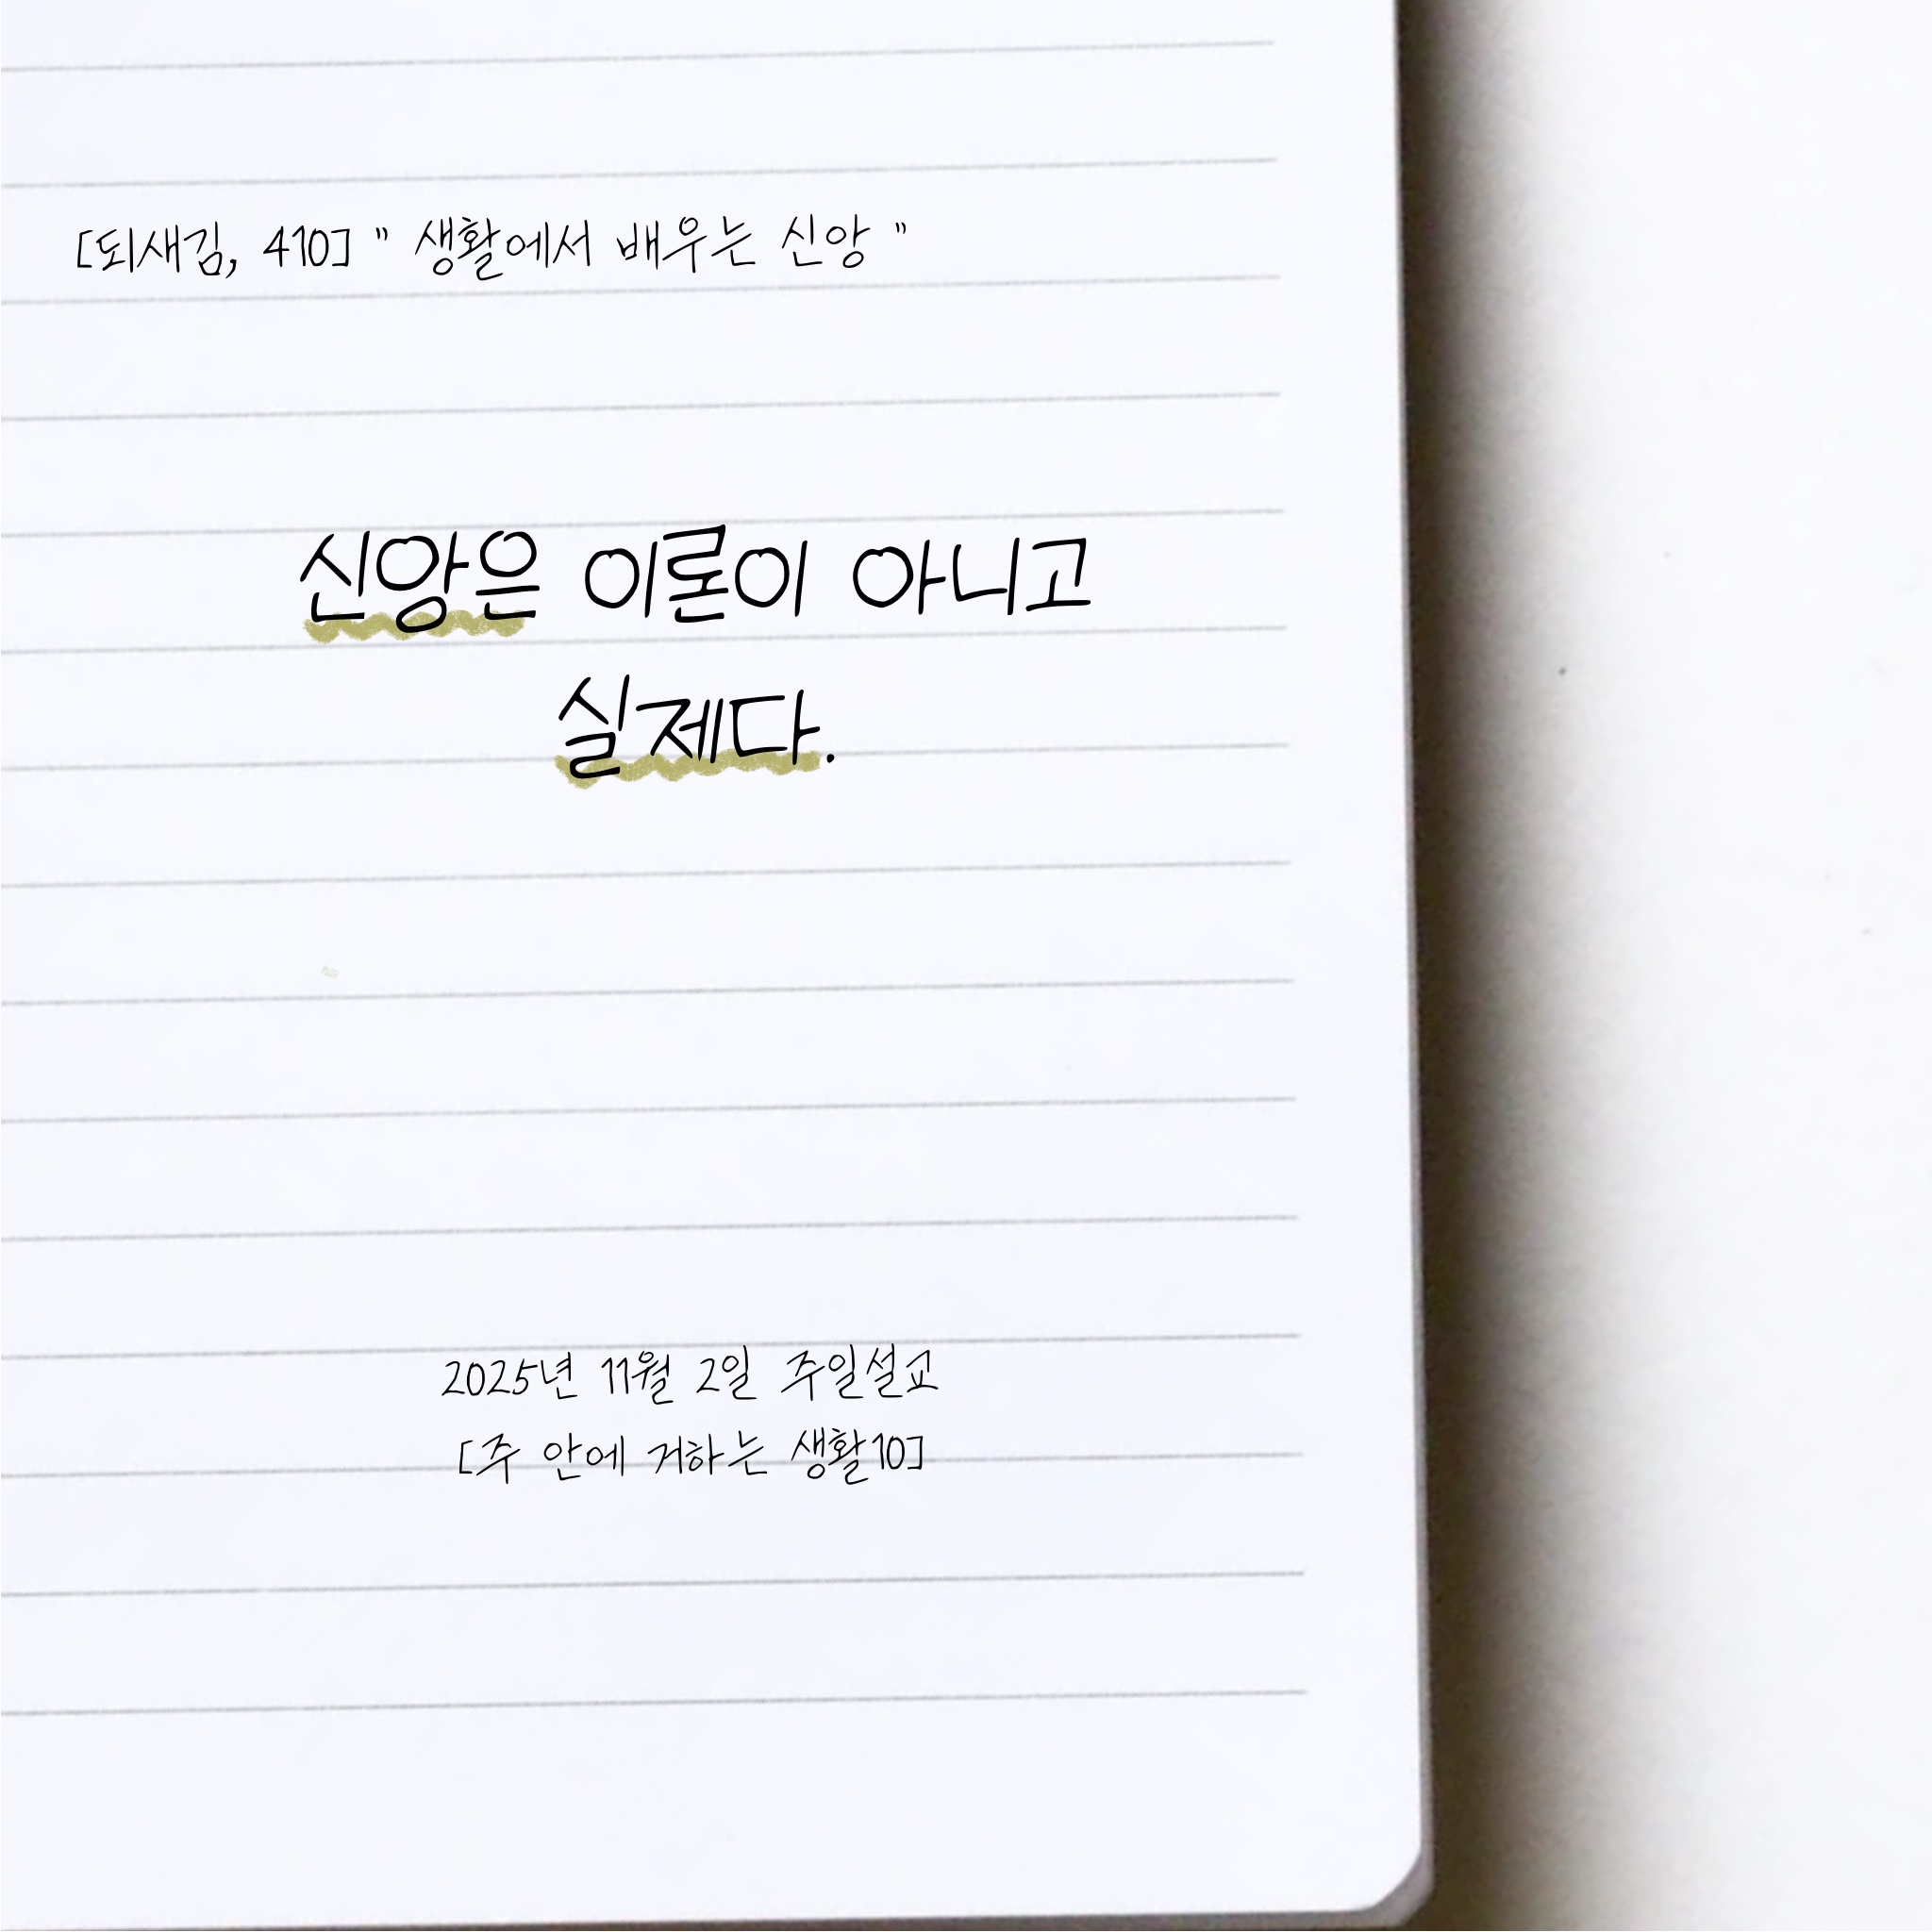 [되새김, 410] " 생활에서 배우는 신앙 "
신앙은 이론이 아니고
실제다.
2025년 11월 2일 주일설교
[주 안에 거하는 생활10]